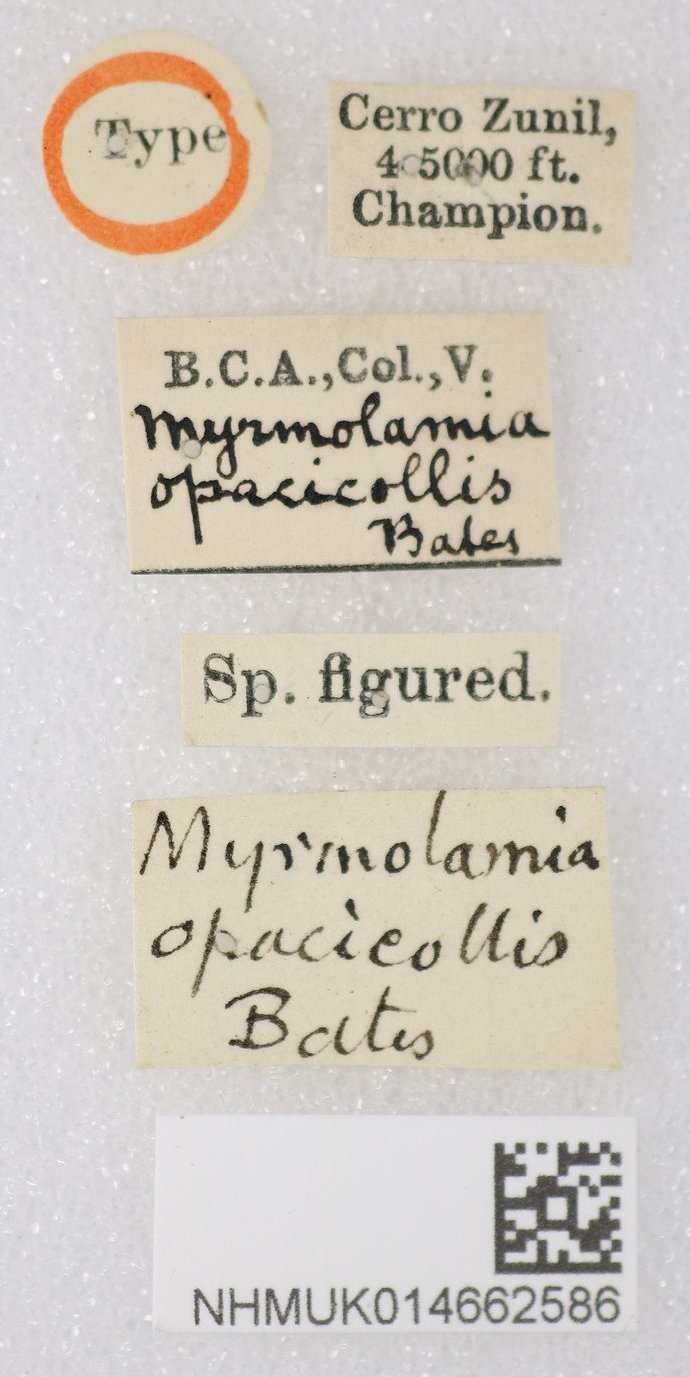 Type
Cerro Zunil,
4-5000 ft.
Champion.
B.C.A., Col., V.
Myrmolamia
opacicollis
Bates
Sp. figured.
Myrmolamia
opacicollis
Bates
NHMUK014662586